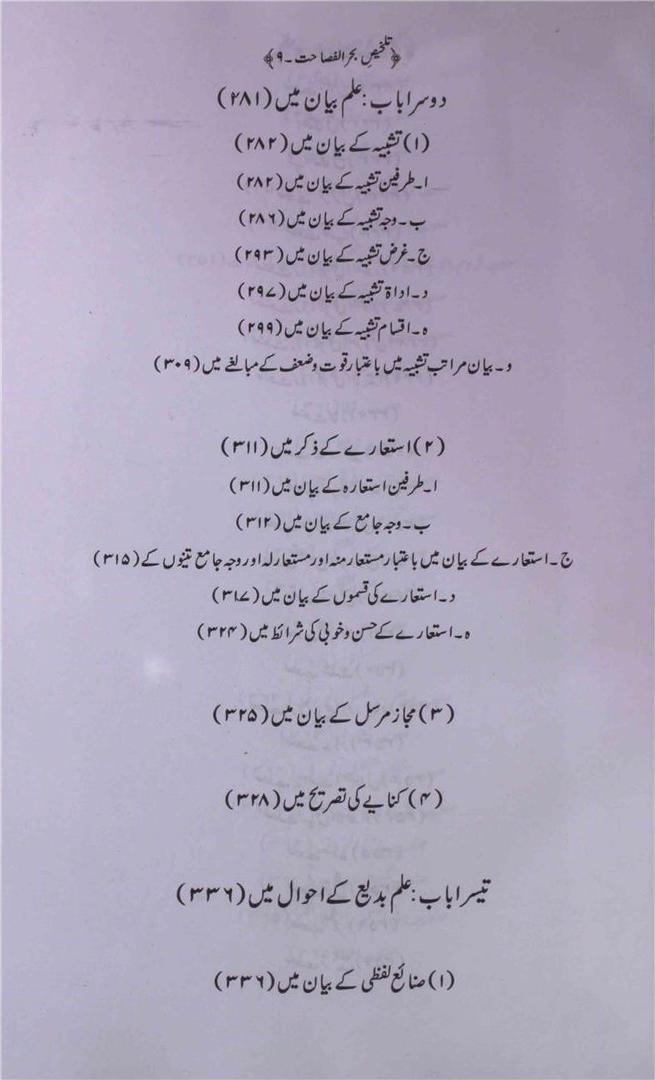 ﴿تلخیصِ بحر الفصاحت۔۹﴾
دوسرا باب: علم بیان میں (۲۸۱)
(۱) تشبیہ کے بیان میں (۲۸۲)
ا۔ طرفین تشبیہ کے بیان میں (۲۸۲)
ب۔ وجہ تشبیہ کے بیان میں (۲۸۶)
ج۔ غرض تشبیہ کے بیان میں (۲۹۳)
د۔ اداۃ تشبیہ کے بیان میں (۲۹۷)
ہ۔ اقسام تشبیہ کے بیان میں (۲۹۹)
و۔ بیان مراتب تشبیہ میں باعتبار قوت وضعف کے مبالغے میں (۳۰۹)
(۲) استعارے کے ذکر میں (۳۱۱)
ا۔ طرفین استعارہ کے بیان میں (۳۱۱)
ب۔ وجہ جامع کے بیان میں (۳۱۲)
ج۔ استعارے کے بیان میں باعتبار مستعار منہ اور مستعار لہ اور وجہ جامع تینوں کے (۳۱۵)
د۔ استعارے کی قسموں کے بیان میں (۳۱۷)
ہ۔ استعارے کے حسن وخوبی کی شرائط میں (۳۲۴)
(۳) مجاز مرسل کے بیان میں (۳۲۵)
(۴) کنایے کی تصریح میں (۳۲۸)
تیسرا باب: علم بدیع کے احوال میں (۳۳۶)
(۱) صنائع لفظی کے بیان میں (۳۳۶)